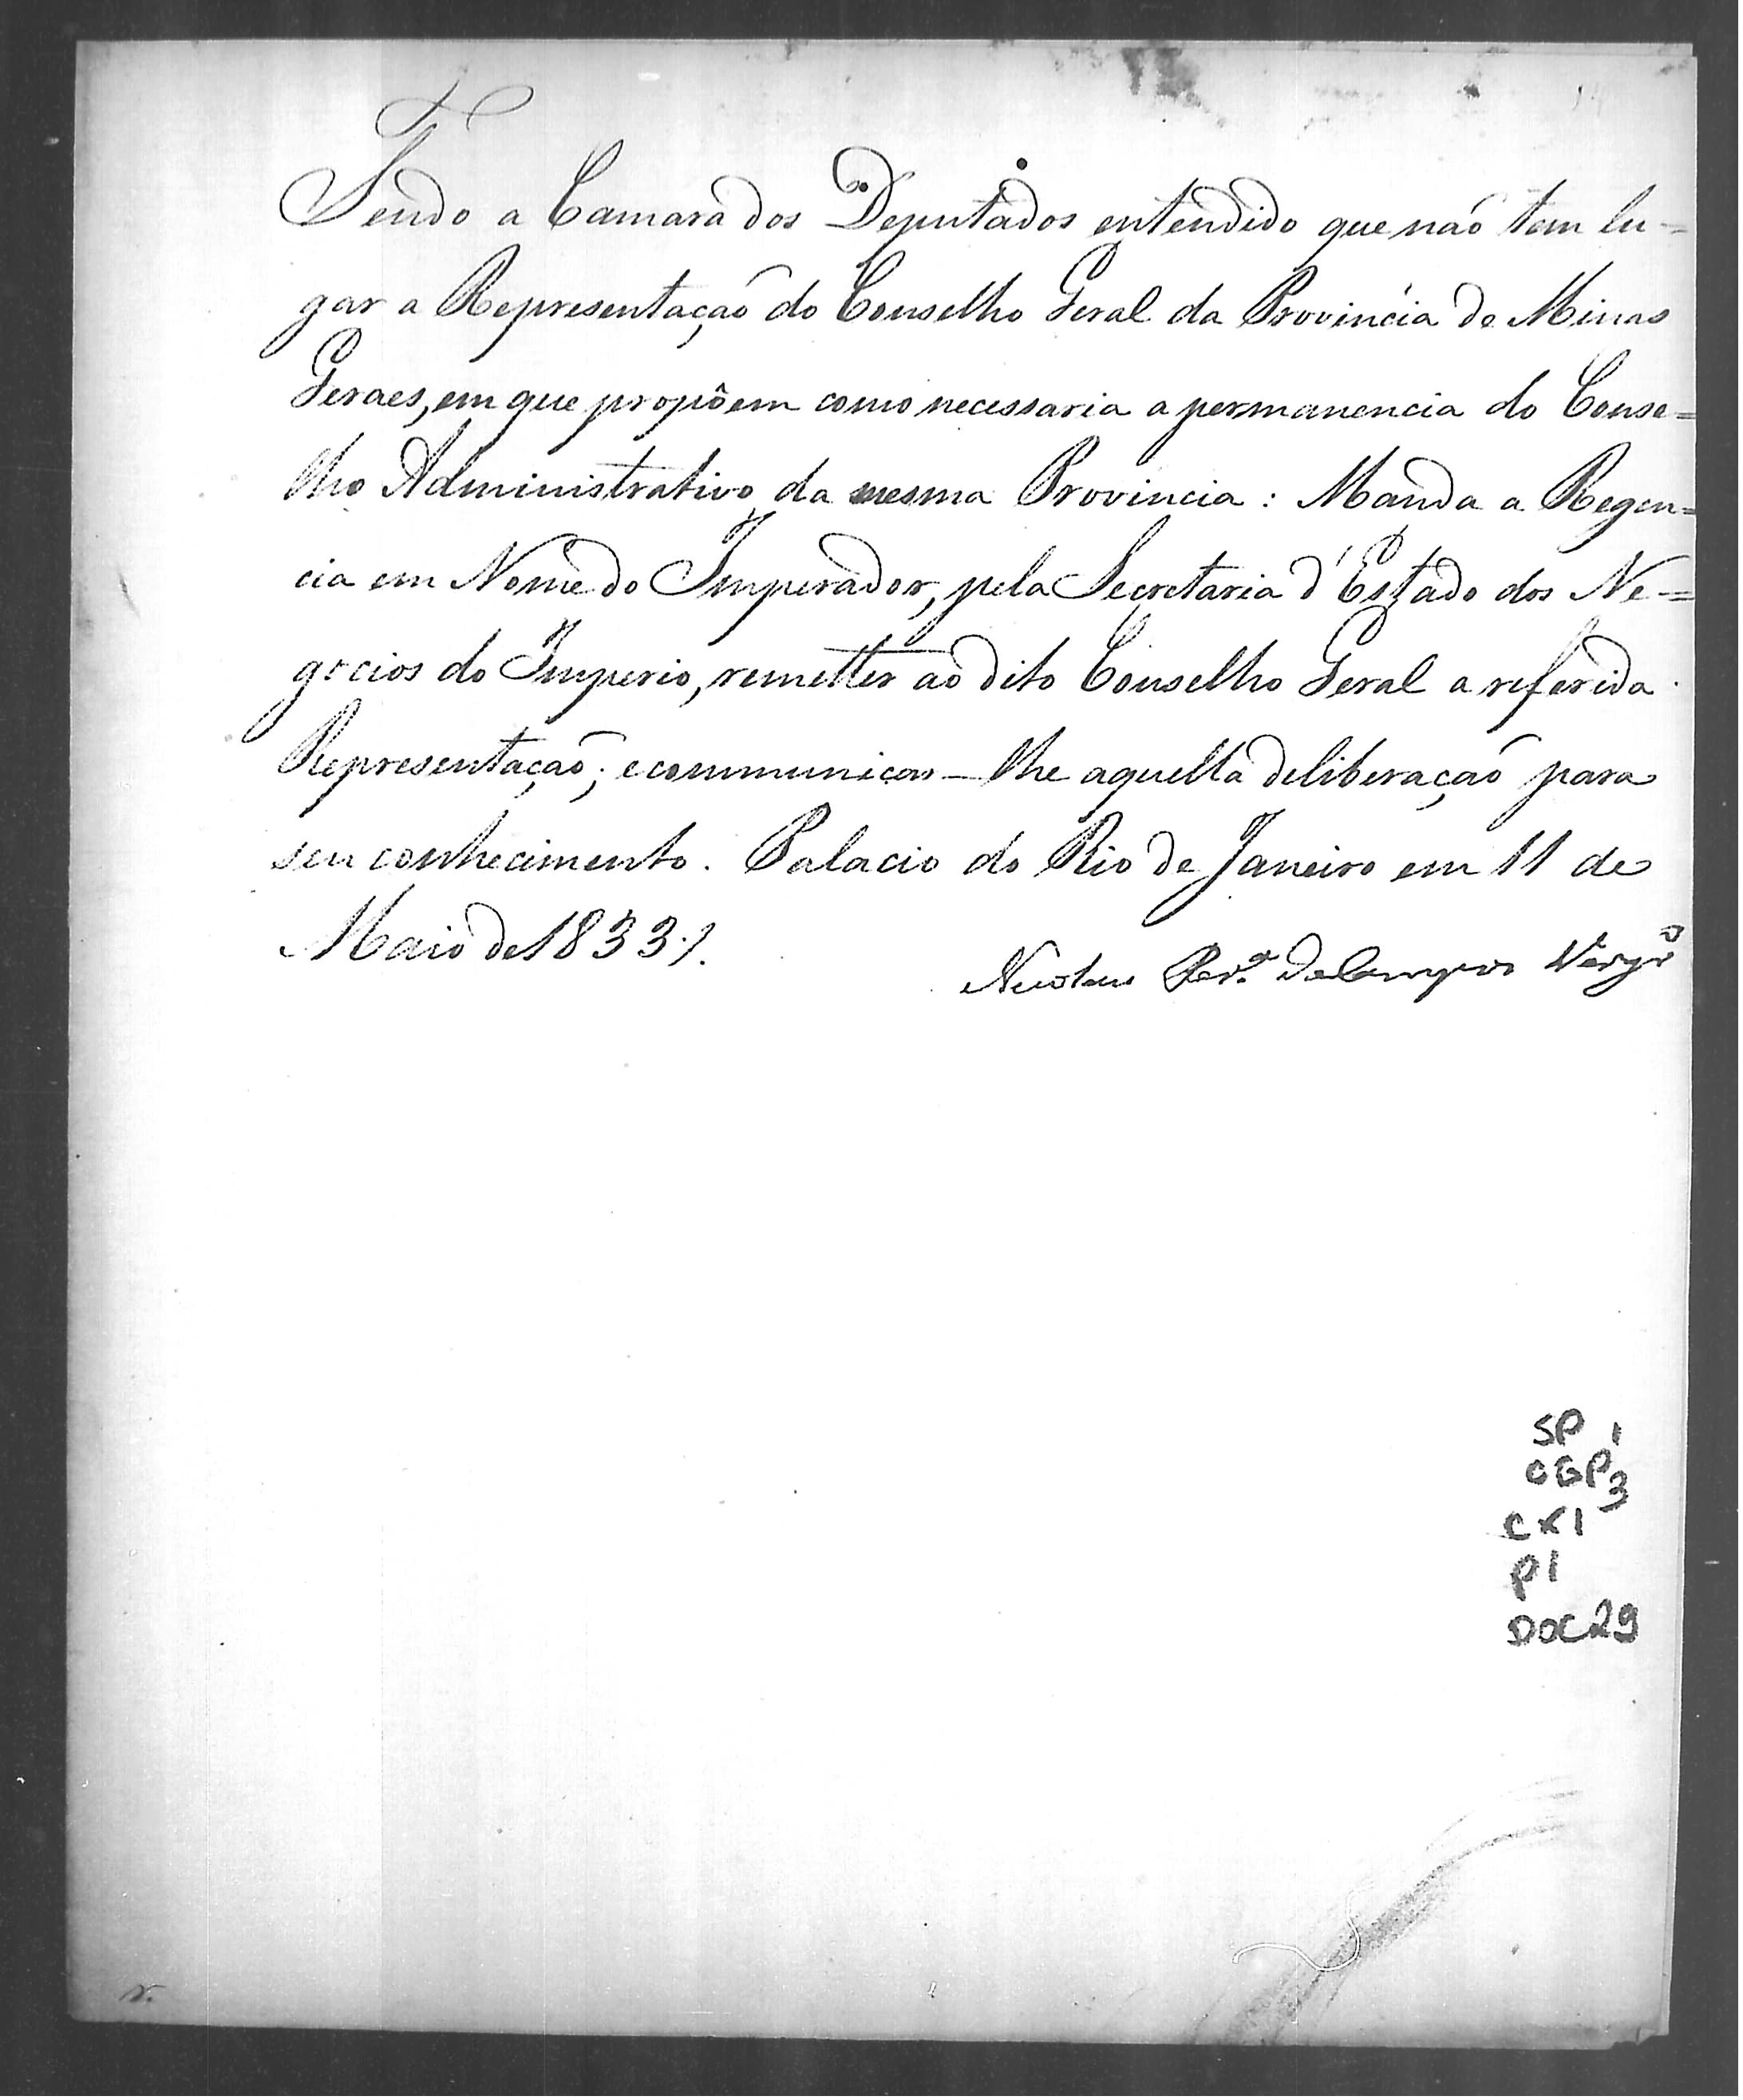 Tendo a Camara dos Deputados entendido que não tem lu=
gar a Representação do Conselho Geral da Provincia de Minas
Geraes, em que propôem como necessaria a permanencia do Conse=
lho Administrativo da mesma Provincia: Manda a Regen=
cia em Nome do Imperador, pela Secretaria d'Estado dos Ne=
gocios do Imperio, remetter ao dito Conselho Geral a referida
Representação; e communicar-lhe aquella deliberação para
seu conhecimento. Palacio do Rio de Janeiro em 11 de
Maio de 1833 ./.
Nicolau Per.ª de Campos Vergr.º
SP 1
CGP3
CX1
P1
DOC29